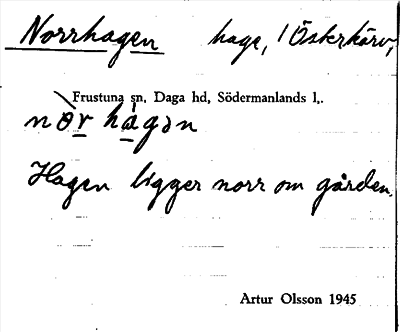 Norrhagen hage, i Österkärv,
Frustuna sn, Daga hd, Södermanlands l..
nòr hágən
Hagen ligger norr om gården.
Artur Olsson 1945